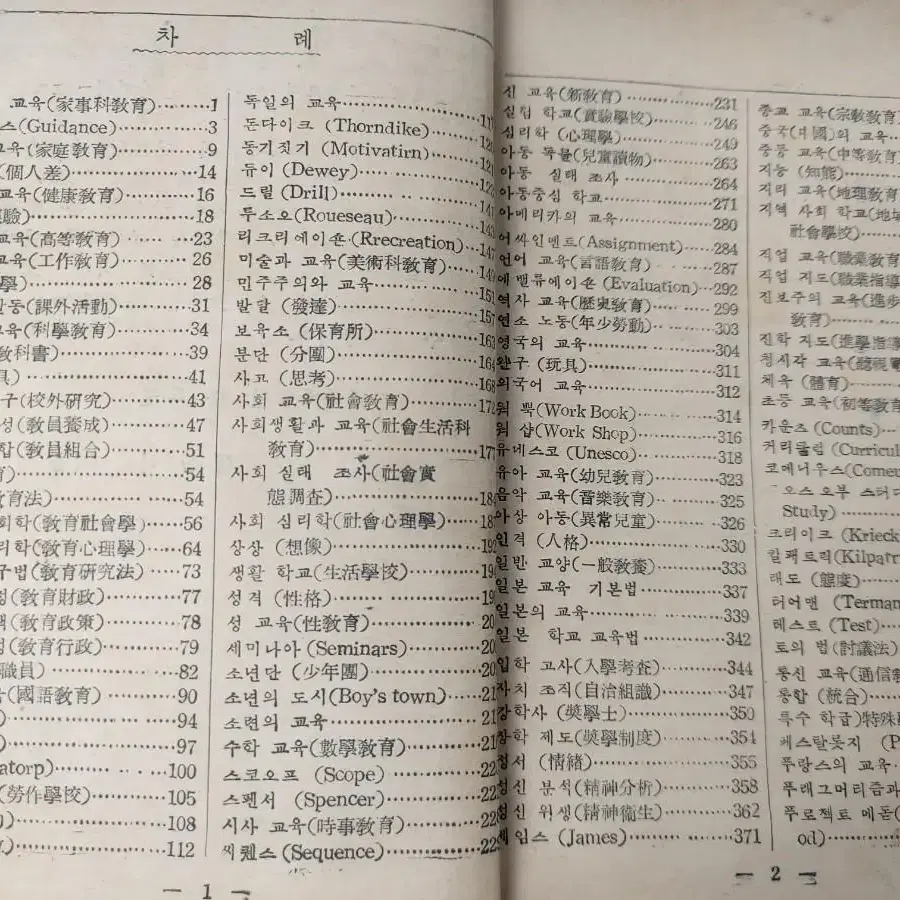 차 례
교육(家事科敎育)········1
스(Guidance)············3
교육(家庭敎育)·········9
(個人差)···············14
교육(健康敎育)········16
驗)····················18
교육(高等敎育)········23
교육(工作敎育)········26
學)····················28
활동(課外活動)········31
교육(科學敎育)········34
敎科書)················39
具)····················41
구(校外研究)··········43
성(敎員養成)··········47
합(敎員組合)··········51
育)····················54
敎育法)················54
회학(敎育社會學)······56
리학(敎育心理學)······64
구법(敎育研究法)······73
정(敎育財政)··········77
책(敎育政策)··········78
정(敎育行政)··········79
職員)··················82
육(國語敎育)··········90
)······················94
)······················97
atorp)·················100
(勞作學校)············105
)······················108
)······················112
독일의 교육············
돈다이크 (Thorndike)····
동기짓기 (Motivatirn)····
듀이 (Dewey)············
드릴 (Drill)············
루소오(Roueseau)········
리크리에이슌(Rrecreation)··
미술과 교육(美術科敎育)····
민주주의와 교육··········
발달 (發達)············157
보육소 (保育所)········163
분단 (分團)············164
사고 (思考)············168
사회 교육(社會敎育)······
사회생활과 교육(社會生活科
敎育)··················
사회 실태 조사(社會實
態調査)················
사회 심리학(社會心理學)····
상상 (想像)············
생활 학교(生活學校)······
성격 (性格)············
성 교육(性敎育)········
세미나아(Seminars)······
소년단 (少年團)········
소년의 도시(Boy's town)····
소련의 교육············
수학 교육(數學敎育)······
스코오프 (Scope)········
스펜서 (Spencer)········
시사 교육(時事敎育)······
씨퀜스(Sequence)········
— 1 —
신 교육(新敎育)········231
실험 학교(實驗學校)····246
심리학 (心理學)········249
아동 독물(兒童讀物)····263
아동 실태 조사········264
아동중심 학교··········271
아메리카의 교육········280
어싸인멘트(Assignment)····284
언어 교육(言語敎育)····287
에밸류에이슌(Evaluation)··292
역사 교육(歷史敎育)····299
연소 노동(年少勞動)····303
영국의 교육············304
완구 (玩具)············311
외국어 교육············312
워 뿍(Work Book)········314
워 샵(Work Shop)········316
유네스코 (Unesco)······318
유아 교육(幼兒敎育)····323
음악 교육(音樂敎育)····325
이상 아동(異常兒童)····326
인격 (人格)············330
일반 교양(一般敎養)····333
일본 교육 기본법······337
일본의 교육············339
일본 학교 교육법······342
입학 고사(入學考査)····344
자치 조직(自治組織)····347
장학사 (奬學士)········350
장학 제도(奬學制度)····354
정서 (情緖)············355
정신 분석(精神分析)····358
정신 위생(精神衞生)····362
제임스 (James)··········371
종교 교육(宗敎敎育)
중국(中國)의 교육····
중등 교육(中等敎育)
지능 (知能)··········
지리 교육(地理敎育)
지역 사회 학교(地域
社會學校)············
직업 교육(職業敎育
직업 지도(職業指導
진보주의 교육(進步
敎育)················
진학 지도(進學指導
청시각 교육(聽視覺
체육 (體育)··········
초등 교육(初等敎育
카운츠 (Counts)······
커리큘럼 (Curricul
코메니우스(Comen
오스 오부 스터디
Study)··············
크리이크 (Krieck
킬패트릭(Kilpatr
태도 (態度)··········
터어맨 (Terman
테스트 (Test)········
토의 법(討議法)
통신 교육(通信敎
통합 (統合)··········
특수 학급)特殊
페스탈롯지 (P
푸랑스의 교육····
푸래그머티즘과
푸로젝트 메돋(
od)··················
— 2 —